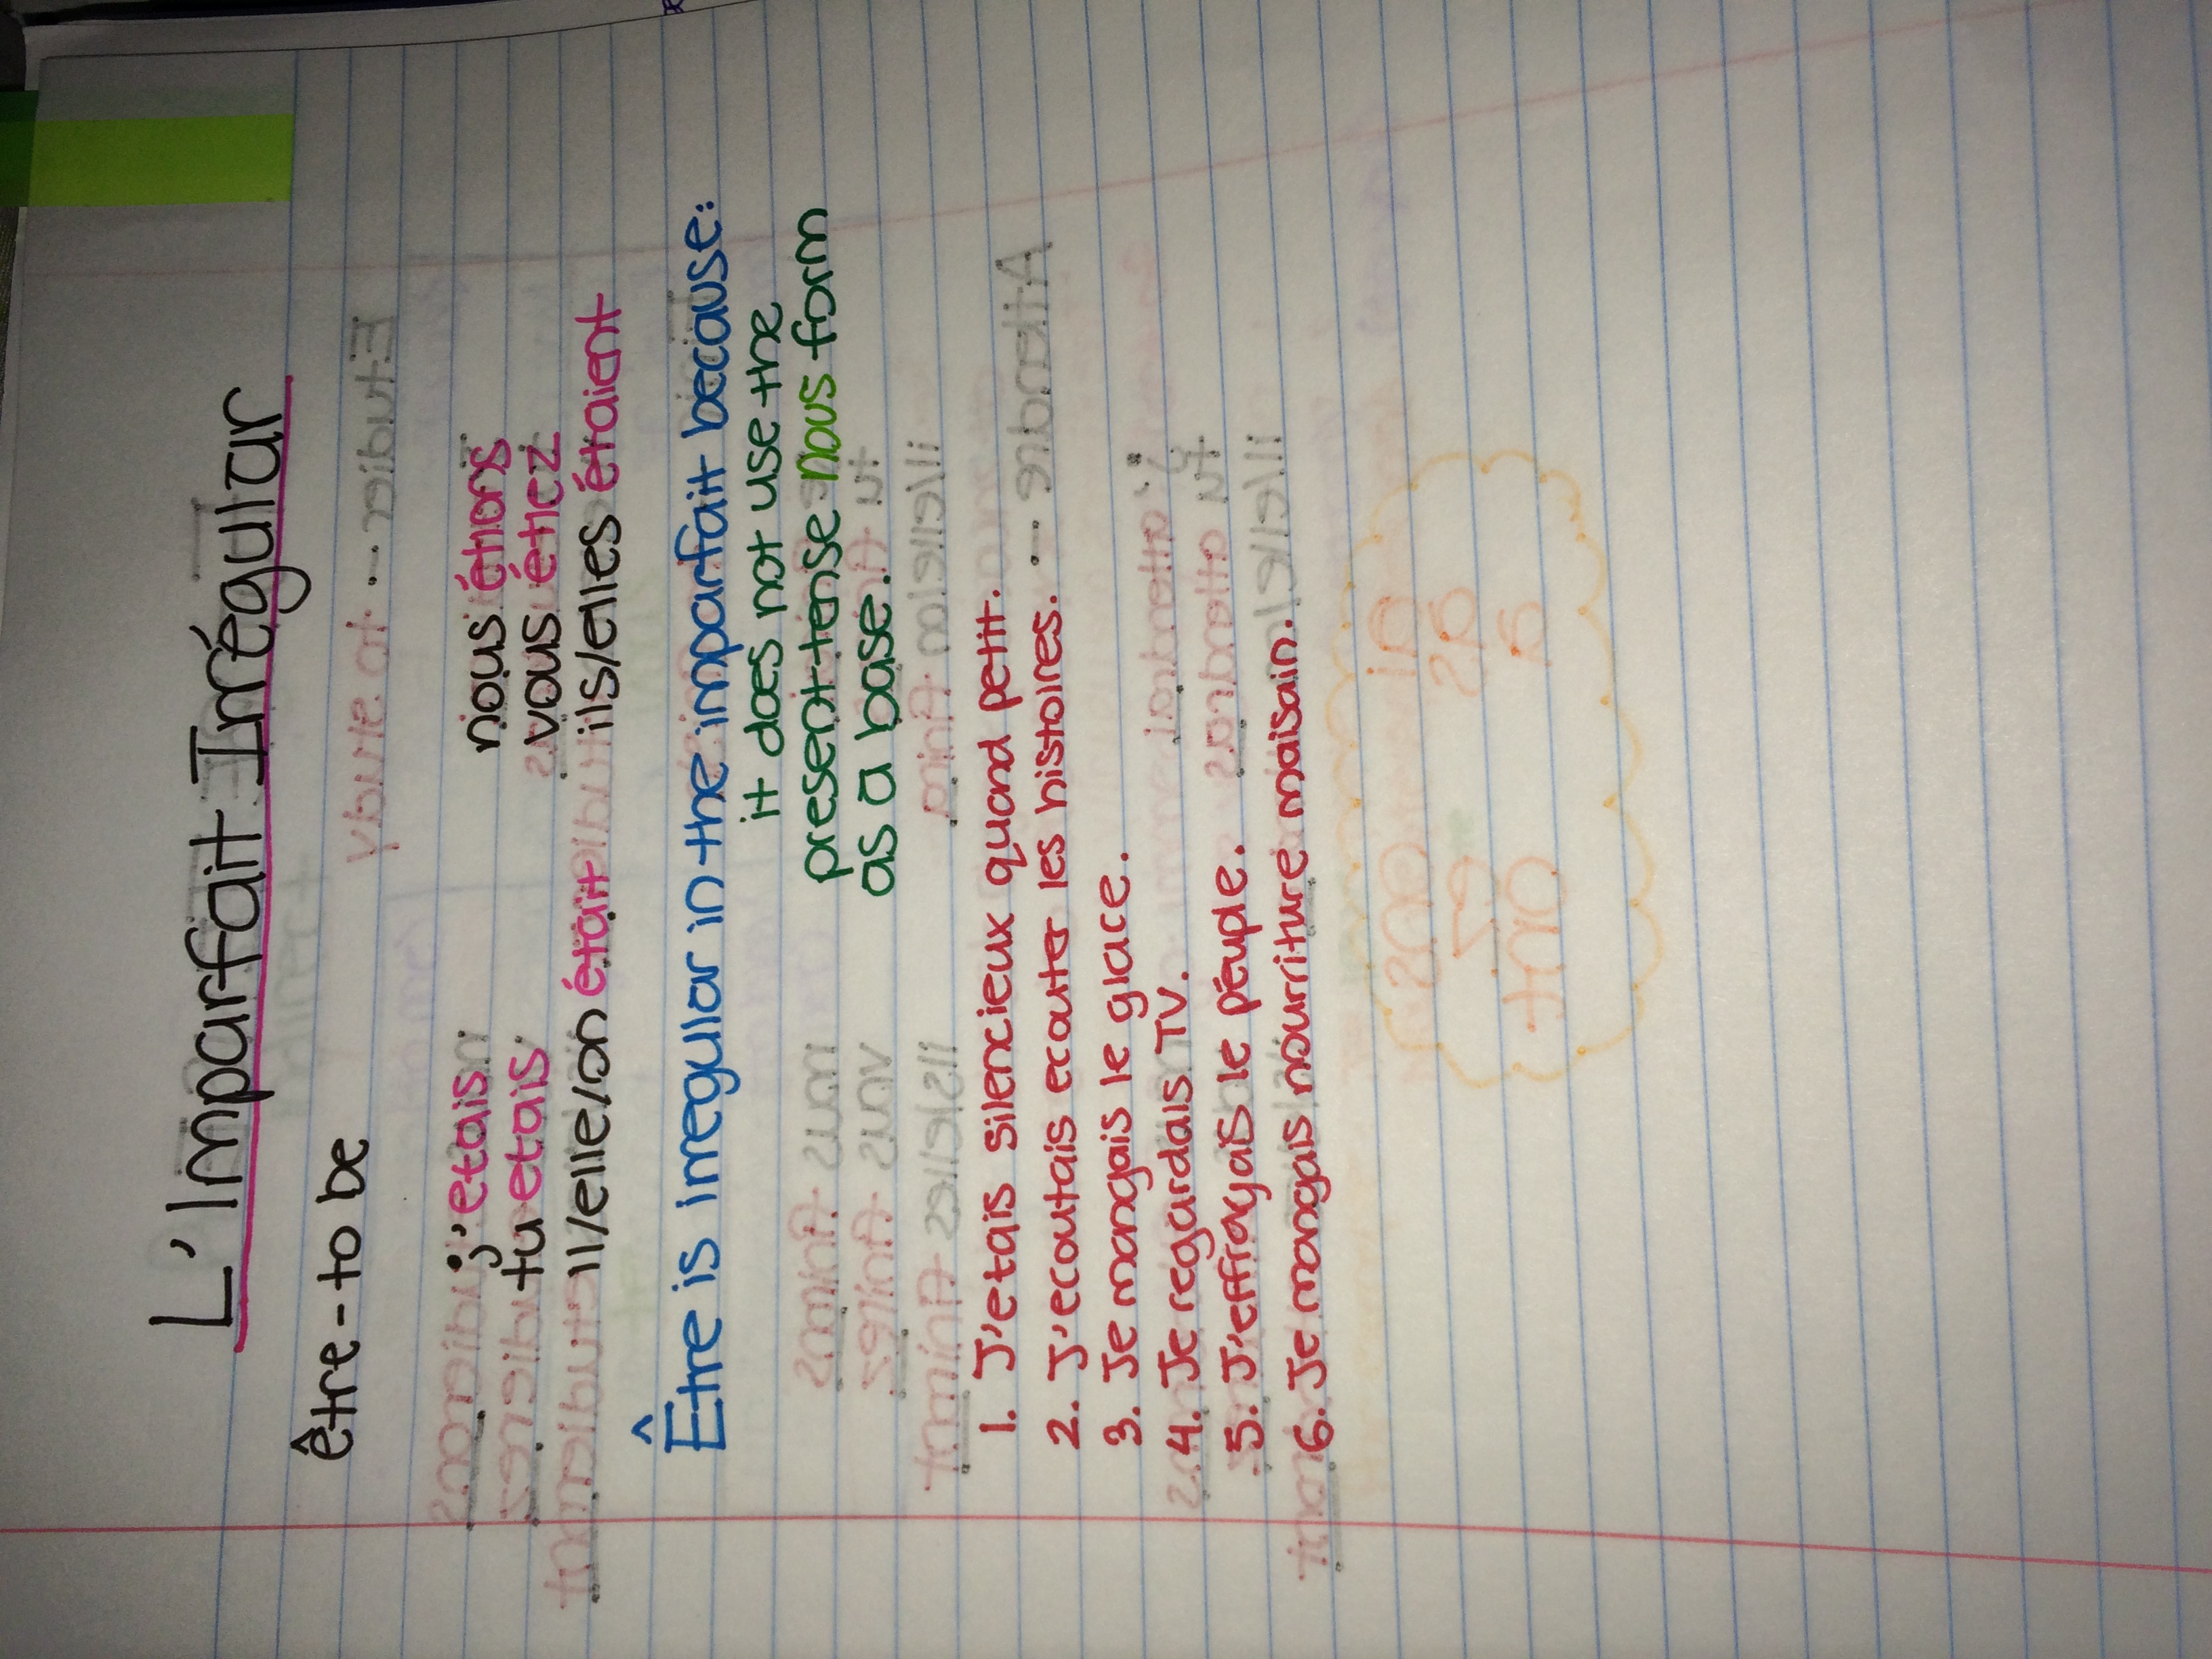 L'Imparfait Irrégular
être - to be
j'etais nous étions
tu etais vous étiez
il/elle/on était ils/elles étaient
Être is irregular in the imparfait because:
it does not use the
present tense nous form
as a base.
1. J'etais silencieux quand petit.
2. J'ecoutais ecouter les histoires.
3. Je mangais le glace.
4. Je regardais TV.
5. J'effrayais le péuple.
6. Je mangais nourriture maisain.